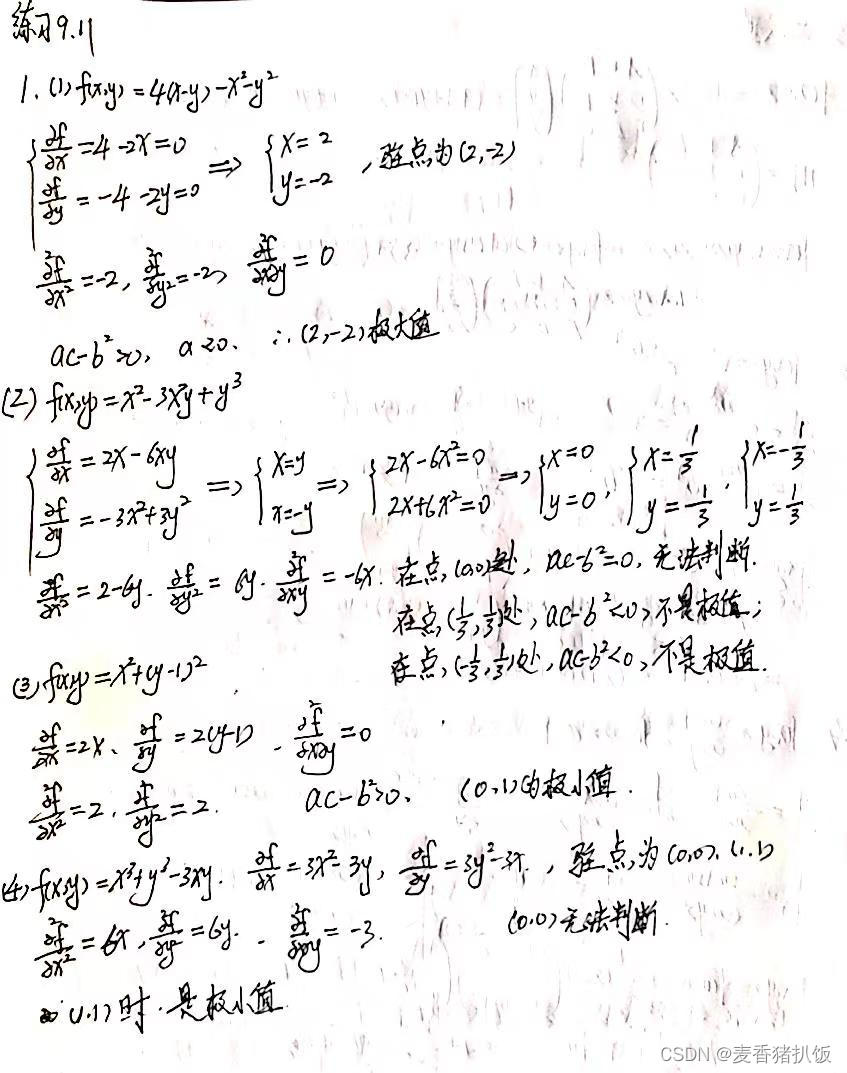 练习9.11
1. (1) f(x,y) = 4(x-y) - x² - y²
{ ∂f/∂x = 4 - 2x = 0, ∂f/∂y = -4 - 2y = 0 ⇒ { x = 2, y = -2 , 驻点为(2,-2)
∂²f/∂x² = -2, ∂²f/∂y² = -2, ∂²f/∂x∂y = 0
ac-b²>0, a<0. ∴(2,-2)极大值
(2) f(x,y) = x² - 3x²y + y³
{ ∂f/∂x = 2x - 6xy, ∂f/∂y = -3x² + 3y² ⇒ { x=y, x=-y ⇒ { 2x - 6x² = 0, 2x + 6x² = 0 ⇒ { x=0, y=0 , { x=1/3, y=1/3 , { x=-1/3, y=1/3
∂²f/∂x² = 2-6y. ∂²f/∂y² = 6y. ∂²f/∂xy = -6x. 在点(0,0)处, ac-b²=0, 无法判断.
在点(1/3,1/3)处, ac-b²<0, 不是极值;
在点(-1/3,1/3)处, ac-b²<0, 不是极值.
(3) f(x,y) = x² + (y-1)²
∂f/∂x = 2x、∂f/∂y = 2(y-1) . ∂²f/∂x∂y = 0
∂²f/∂x² = 2, ∂²f/∂y² = 2. ac-b²>0. (0,1)的极小值.
(4) f(x,y) = x³ + y³ - 3xy. ∂f/∂x = 3x² - 3y, ∂f/∂y = 3y² - 3x. , 驻点为(0,0). (1,1)
∂²f/∂x² = 6x, ∂²f/∂y² = 6y. . ∂²f/∂x∂y = -3. (0,0)无法判断.
(1,1)时.是极小值.
CSDN @麦香猪扒饭